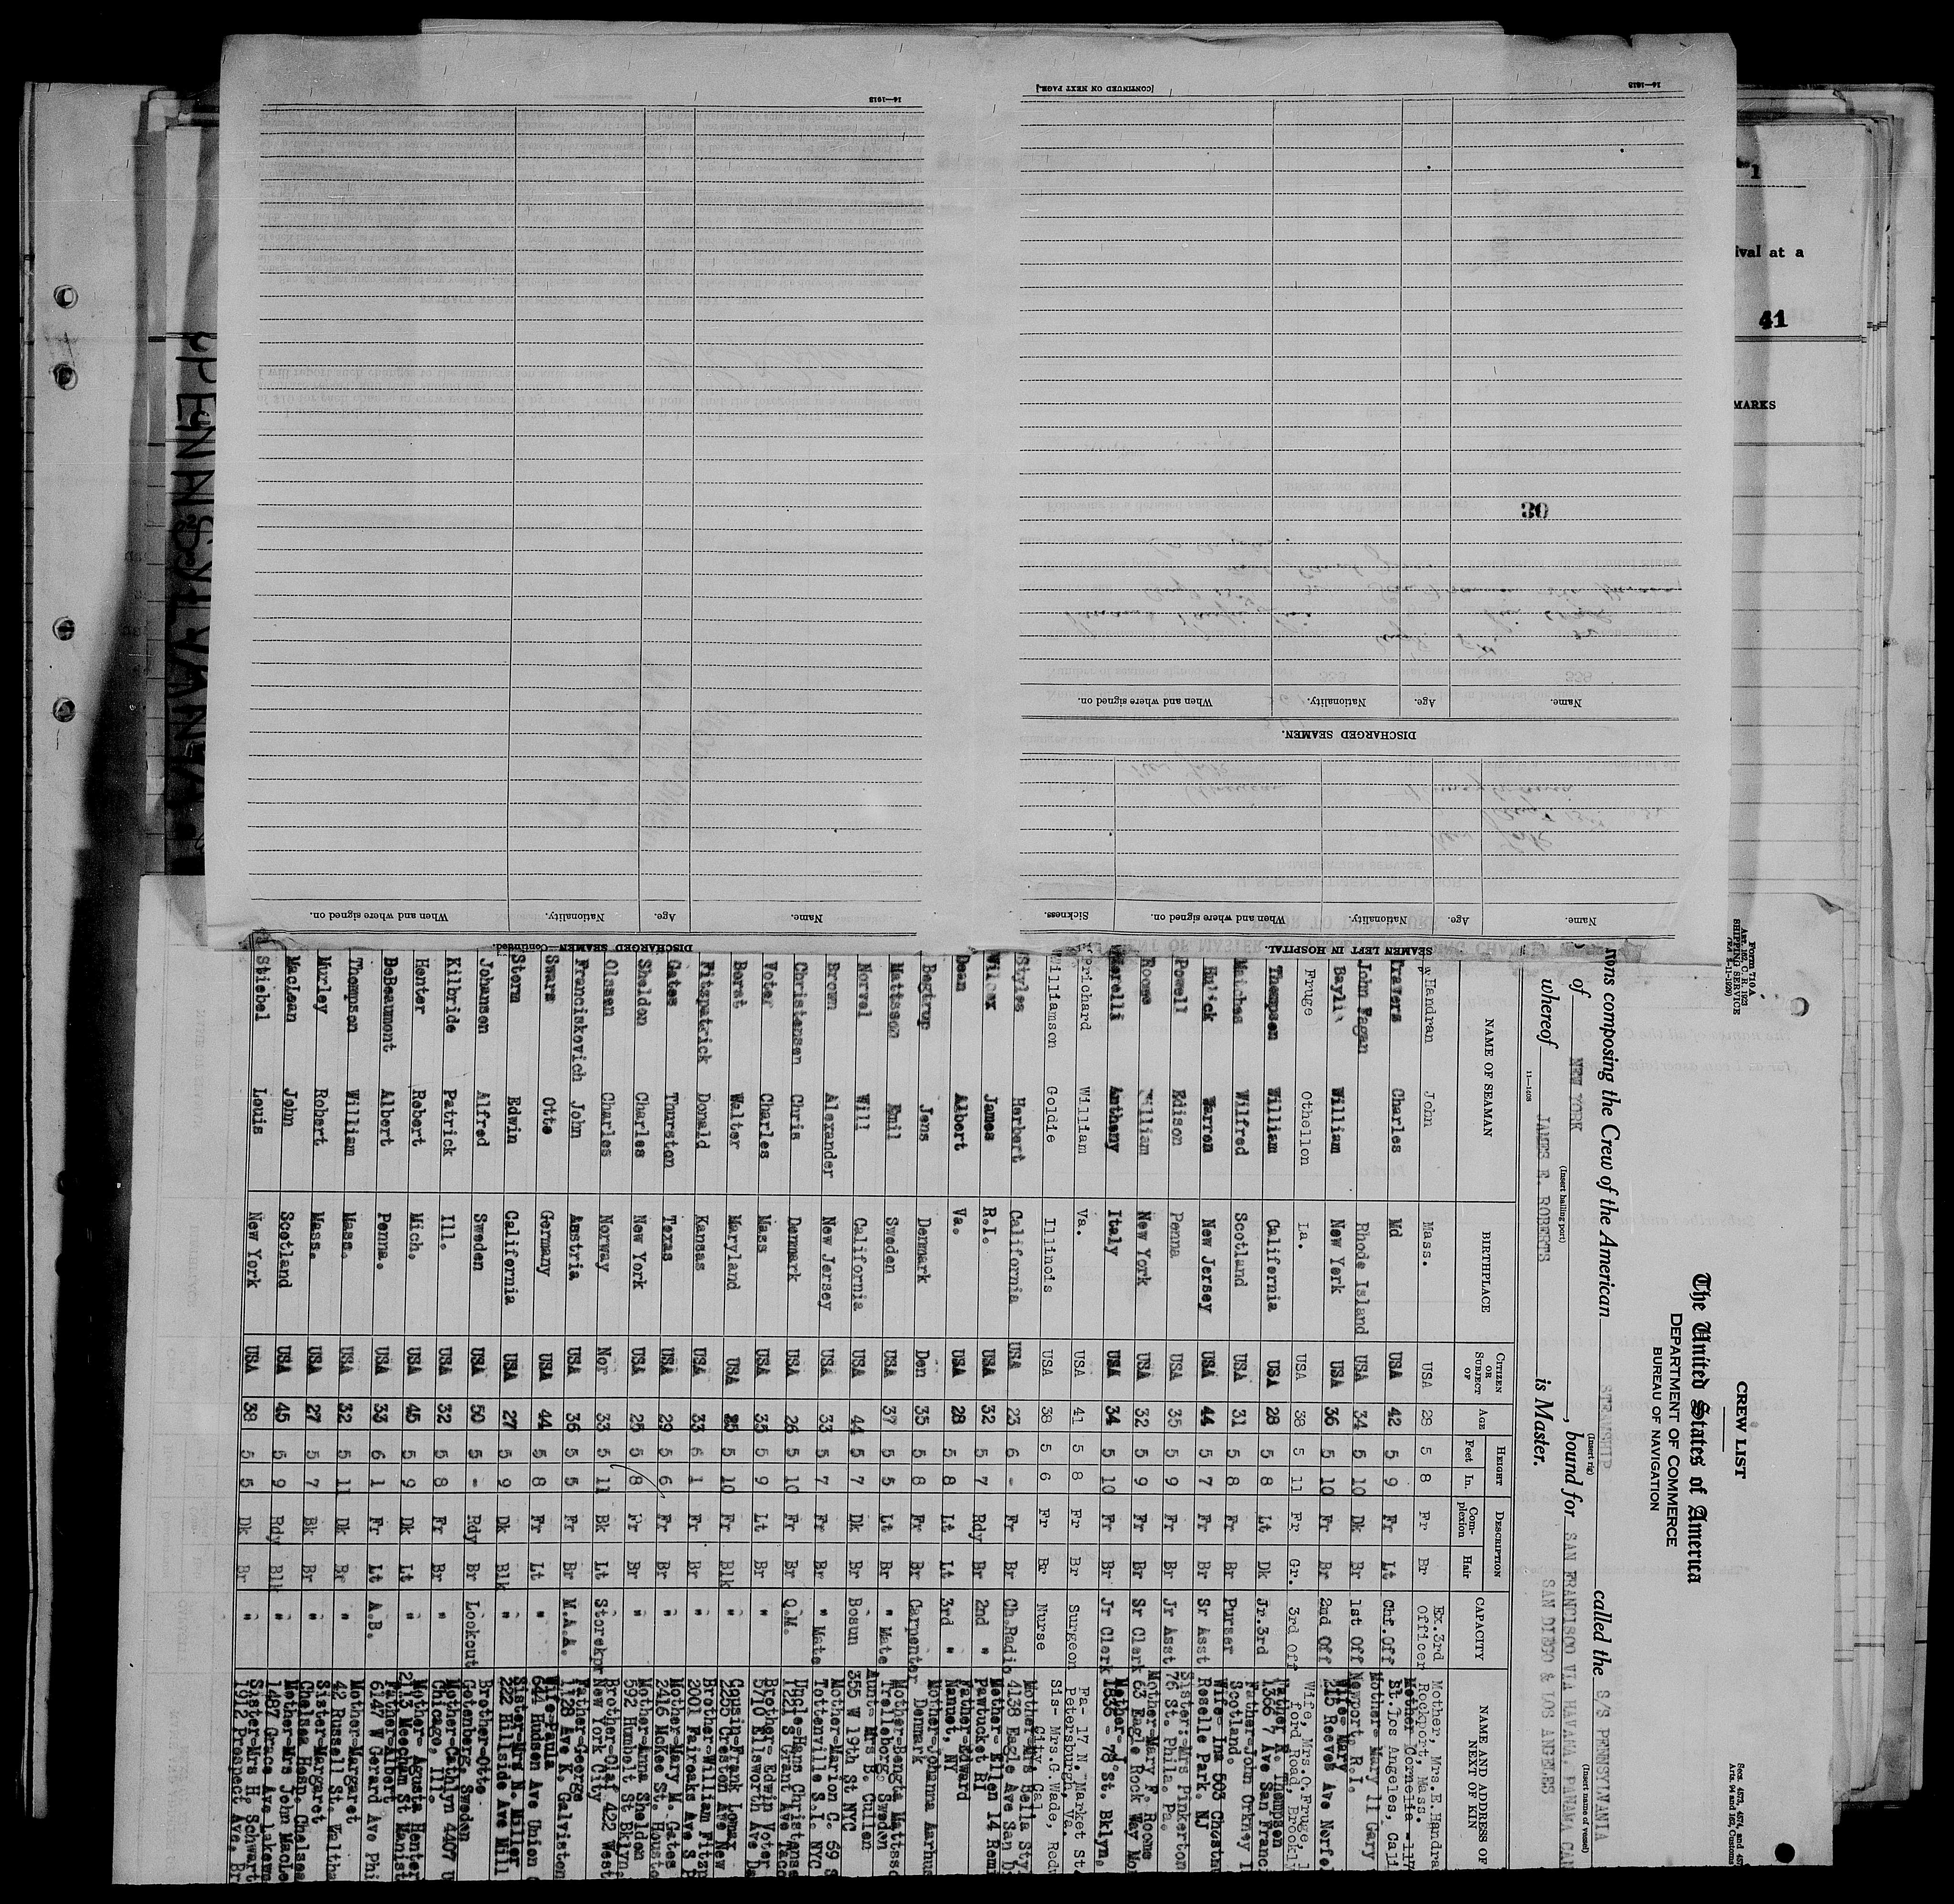 CREW LIST
The United States of America
DEPARTMENT OF COMMERCE
BUREAU OF NAVIGATION
Form 710 A
Art. 162, C. R. 1923
SHIPPING SERVICE
Secs. 4573, 4574, and
Arts. 94 and 162, Customs
composing the Crew of the American STEAMSHIP called the S/S PENNSYLVANIA
(Insert rig) (Insert name of vessel)
of NEW YORK, bound for SAN FRANCISCO VIA HAVANA, PANAMA CAN
(Insert hailing port)
SAN DIEGO & LOS ANGELES
whereof JAMES E. ROBERTS is Master.
NAME OF SEAMAN BIRTHPLACE CITIZEN OR SUBJECT OF AGE HEIGHT Feet In. DESCRIPTION Complexion Hair CAPACITY NAME AND ADDRESS OF NEXT OF KIN
Handran John Mass. USA 28 5 8 Fr Br Ex.3rd Officer Mother, Mrs.E.Handra Rockport, Mass.
Travers Charles Md USA 42 5 9 Fr Lt Chf.Off Mother Cornelia Los Angeles, Cali
John Fagan Rhode Island USA 34 5 10 Dk Br 1st Off Mother- Mary 11 Cary Newport, R.I.
Baylis William New York USA 36 5 10 Fr Br 2nd Off Wife- Mary 215 Reeves Ave Norfol
Fruge Othellon La. USA 38 5 11 Fr Gr. 3rd Off Wife, Mrs.O.Fruge, ford Road, Brookly
Thompson William California USA 28 5 8 Lt Dk Jr.3rd Father K Thompson 1366 7 Ave San Franci
Matches Wilfred Scotland USA 31 5 8 Fr Br Purser Father-John Orkney I Scotland.
Warren New Jersey USA 44 5 7 Fr Br Sr Asst Wife- Ina 503 Chestnu Roselle Park. NJ
Powell Edison Penna USA 35 5 9 Fr Br Jr Asst Sister:-Mrs Pinkerton 76 St. Phila. Pa.
Roome William New York USA 32 5 9 Fr Br Sr Clerk Mother-Mary F. Roome 63 Eagle Rock Way Mo
Anthony Italy USA 34 5 10 Fr Br Jr Clerk Mother- 1836 - 78 St. Bklyn.
Prichard William Va. USA 41 5 8 Fr Br Surgeon Fa- 17 N Market St. Petersburg, Va.
Williamson Goldie Illinois USA 38 5 6 Fr Br Nurse Sis- Mrs.G.Wade, Redw City, Cal
Styles Herbert California USA 23 6 - Fr Br Ch.Radio Mother-Mrs Bella Sty 4138 Eagle Ave San D
Wilcox James R.I. USA 32 5 7 Rdy Br 2nd " Mother- Ellen 14 Remi Pawtucket RI
Dean Albert Va. USA 28 5 8 Lt Lt 3rd " Father-Edward Nanuet, NY
Begtrup Jens Denmark Den 35 5 8 Fr Br Carpenter Mother-Johanna Aarhus Denmark
Mattsson Emil Sweden USA 37 5 5 Lt Br " Mate Mother-Bengta Mattsso Trelleborg, Sweden
Norvel Will California USA 44 5 7 Dk Br Bosun Aunt- Mrs B. Cullen 355 W 19th St NYC
Brown Alexander New Jersey USA 33 5 7 Fr Br " Mate Mother-Marion C. 69 S Tottenville S.I. NYC
Christensen Chris Denmark USA 26 5 10 Fr Br Q.M. Uncle-Hans Christense 1221 S Grant Ave Taco
Voter Charles Mass USA 35 5 9 Lt Br " Brother Edwin Voter 5710 Ellsworth Ave Da
Borst Walter Maryland USA 25 5 10 Fr Blk " Cousin-Frank Lomax 2265 Creston Ave New
Fitzpatrick Donald Kansas USA 33 6 1 Fr Br " Brother-William Fitzp 2001 Fairoaks Ave S P
Gates Thurston Texas USA 29 5 6 Fr Br " Mother-Mary M. Gates 2416 McKee St. Housto
Sheldon Charles New York USA 25 5 8 Fr Br " Mother-Anna Sheldon 592 Humbolt St Bklyn.
Olssen Charles Norway Nor 33 5 11 Bk Lt Storekpr Brother-Olaf 422 West New York City
Franciskovich John Austria USA 36 5 5 Fr Br M.A.A. Father-George 1128 Ave K. Galviston
Swars Otto Germany USA 44 5 8 Fr Lt " Wife-Paula 644 Hudson Ave Union
Storm Edwin California USA 27 5 9 Dk Blk " Sister-Mrs N. Miller 222 Hillside Ave Mill
Johansen Alfred Sweden USA 50 5 - Rdy Br Lookout Brother-Otto Gotenberg, Sweden
Kilbride Patrick Ill. USA 32 5 8 Fr Br " Mother-Cathlyn 4407 Chicago, Ill.
Henter Robert Mich. USA 45 5 9 Dk Lt " Mother- Agusta Henter Meecham St Manist
DeBeaumont Albert Penna. USA 33 6 1 Fr Lt A.B. Father-Albert 6147 W Gerard Ave Phi
Thompson William Mass. USA 32 5 11 Dk Br " Mother-Margaret 42 Russell St. Waltha
Murley Robert Mass. USA 27 5 7 Bk Br " Sister-Margaret Chelsea Hosp. Chelsea
MacLean John Scotland USA 45 5 9 Rdy Blk " Mother-Mrs John MacLe 1487 Grace Ave Lakewo
Stiebel Louis New York USA 38 5 5 Dk Br " Sister-Mrs H. Schwart 1912 Prospect Ave. Br
SEAMEN LEFT IN HOSPITAL.
Name. Age. Nationality. When and where signed on. Sickness.
DISCHARGED SEAMEN.
Name. Age. Nationality. When and where signed on.
30
[CONTINUED ON NEXT PAGE.]
DISCHARGED SEAMEN—Continued.
Name. Age. Nationality. When and where signed on.
PENNSYLVANIA
1
ival at a
41
MARKS